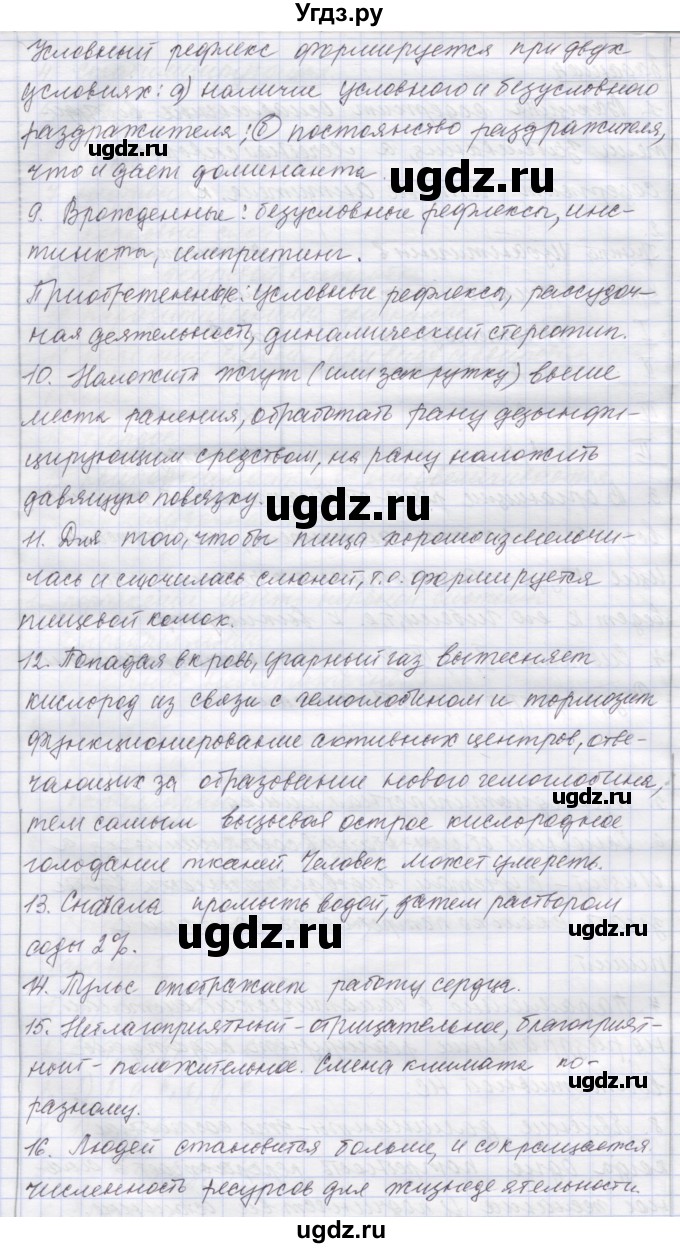 Угдз.ру
Условный рефлекс формируется при двух
условиях: а) наличие условного и безусловного
раздражителя; б) постоянство раздражителя,
что и дает доминанта.
ugdz.ru
9. Врожденные: безусловные рефлексы, инс-
тинкты, импритинг.
ugdz.ru
Приобретенные: условные рефлексы, рассудоч-
ная деятельность, динамический стереотип.
10. Наложить жгут (или закрутку) выше
места ранения, обработать рану дезынфи-
цирующим средством, на рану наложить
давящую повязку.
ugdz.ru
11. Для того, чтобы пища хорошо измельчи-
лась и смочилась слюной, т.о. формируется
пищевой комок.
12. Попадая в кровь, угарный газ вытесняет
кислород из связи с гемоглобином и тормозит
функционирование активных центров, отве-
чающих за образование нового гемоглобина,
ugdz.ru
тем самым вызывая острое кислородное
голодание тканей. Человек может умереть.
13. Сначала промыть водой, затем раствором
соды 2%.
ugdz.ru
ugdz.ru
14. Пульс отображает работу сердца.
15. Неблагоприятный - отрицательное, благоприят-
ный - положительное. Смена климата по-
разному.
ugdz.ru
16. Людей становится больше, и сокращается
численность ресурсов для жизнедеятельности.
ugdz.ru